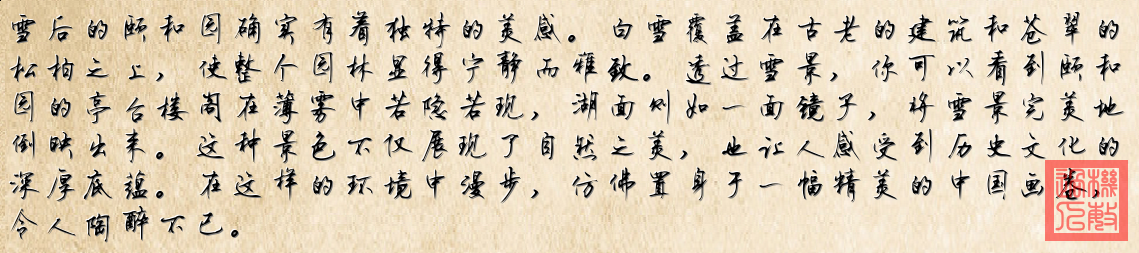 雪后的颐和园确实有着独特的美感。白雪覆盖在古老的建筑和苍翠的
松柏之上，使整个园林显得宁静而雅致。透过雪景，你可以看到颐和
园的亭台楼阁在薄雾中若隐若现，湖面则如一面镜子，将雪景完美地
倒映出来。这种景色不仅展现了自然之美，也让人感受到历史文化的
深厚底蕴。在这样的环境中漫步，仿佛置身于一幅精美的中国画卷，
令人陶醉不已。